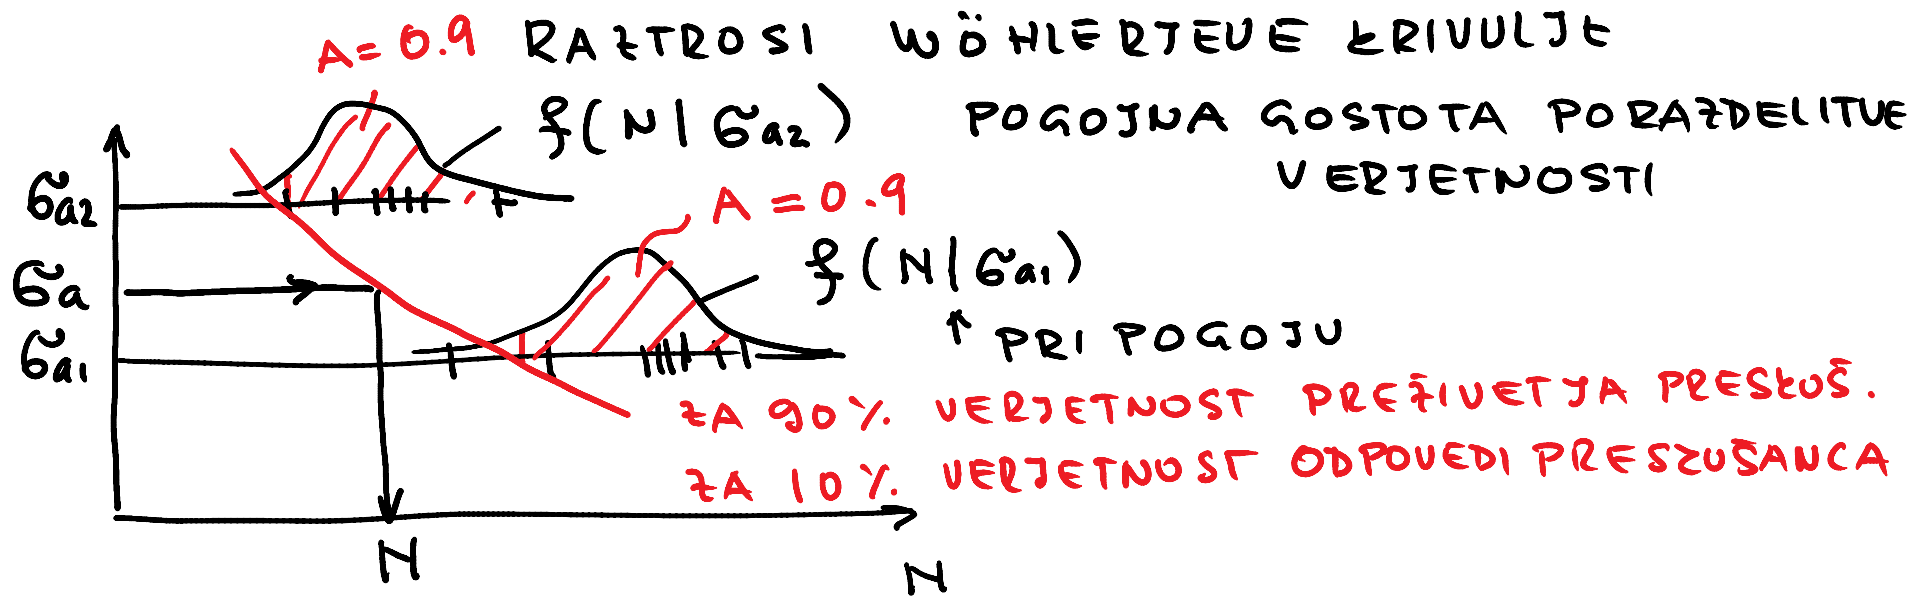 A = 0.9 RAZTROSI WÖHLERJEVE KRIVULJE
f(N|σa2) POGOJNA GOSTOTA PORAZDELITVE
VERJETNOSTI
σa2
A = 0.9
σa
f(N|σa1)
↑ PRI POGOJU
σa1
ZA 90% VERJETNOST PREŽIVETJA PRESKUŠ.
ZA 10% VERJETNOST ODPOVEDI PRESKUŠANCA
N
N